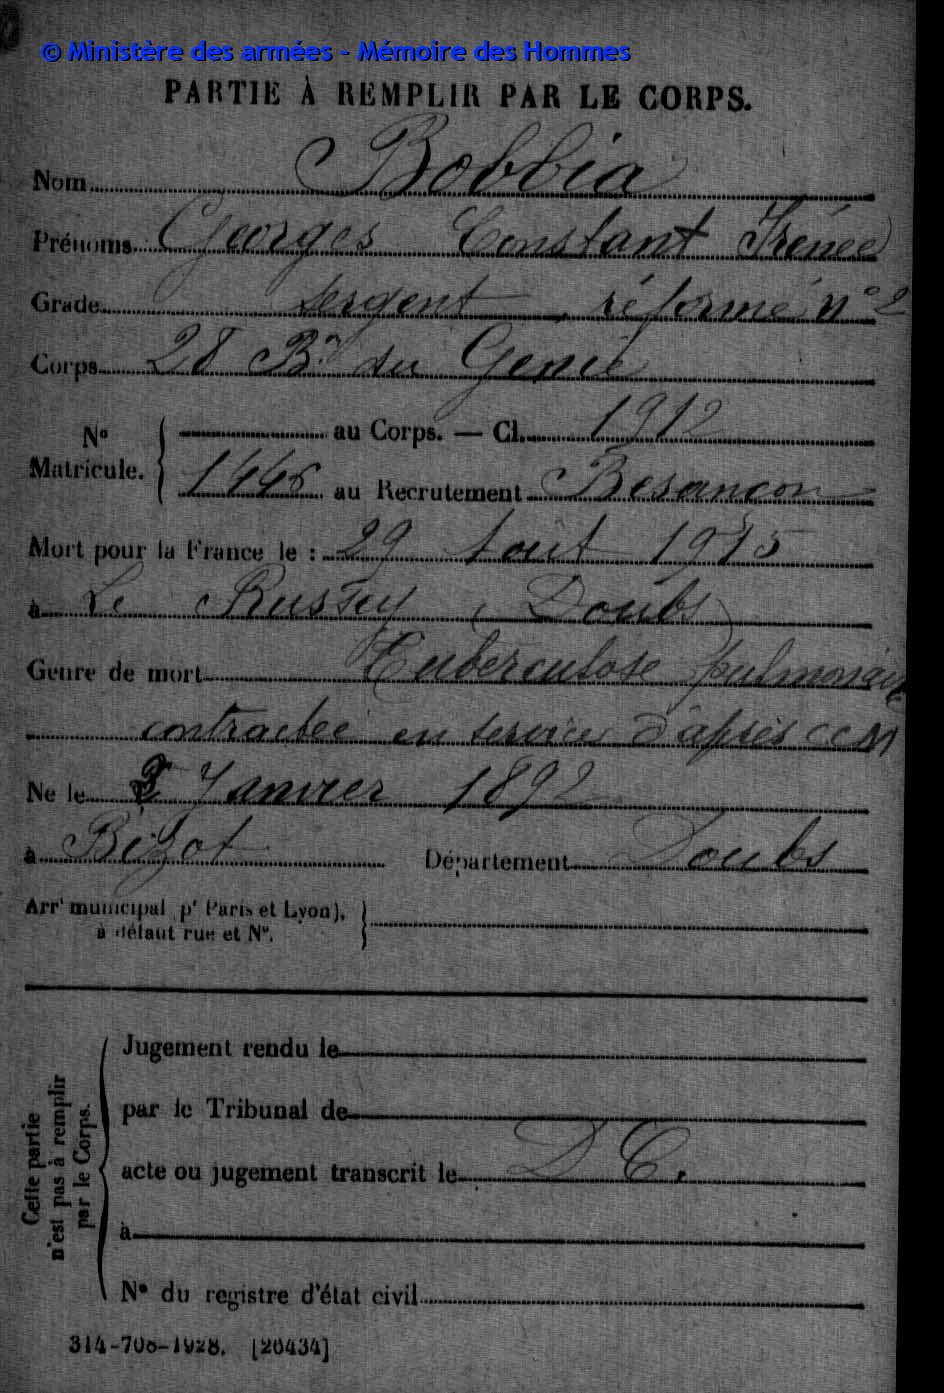 © Ministère des armées - Mémoire des Hommes
PARTIE À REMPLIR PAR LE CORPS.
Nom Bobbia
Prénoms Georges Constant Irénée
Grade sergent, réformé n° 2
Corps 28 Bn du Génie
No Matricule. { au Corps. — Cl. 1912
1446 au Recrutement Besançon
Mort pour la France le : 29 Août 1915
à Le Russey (Doubs)
Genre de mort Tuberculose pulmonaire
contractée en service d'après CCM
Né le 3 Janvier 1892
à Bizot Département Doubs
Arrt municipal pr Paris et Lyon),
à défaut rue et No.
Cette partie
n'est pas à remplir
par le Corps.
Jugement rendu le
par le Tribunal de
acte ou jugement transcrit le D C.
à
No du registre d'état civil
314-708-1928. [26434]